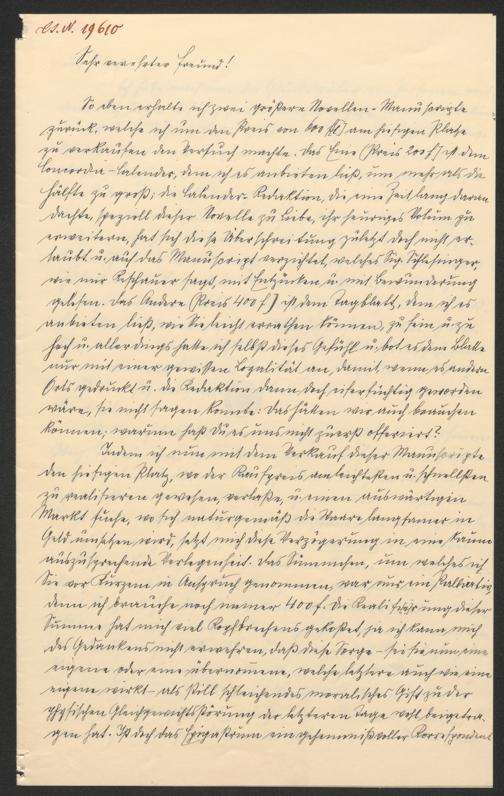 I.N. 19610
Sehr verehrter Freund!
So eben erhalte ich zwei größere Novellen-Manuscripte
zurück, welche ich um den Preis von 600 fl am hiesigen Platze
zu verkaufen den Versuch machte. Das Eine (Preis 200 f) ist dem
Concordia-Calender, dem ich es anbieten ließ, um mehr als die
Hälfte zu groß; die Calender-Redaktion, die eine Zeit lang daran
dachte, speziell dieser Novelle zu Liebe, ihr heuriges Volum zu
erweitern, hat sich diese Überschreitung zuletzt doch nicht er-
laubt u. auf das Manuscript verzichtet, welches Sig. Schlesinger
wie mir Reschauer sagt, mit Entzücken u. mit Bewunderung
gelesen. Das Andere (Preis 400 f) ist dem Tagblatt, dem ich es
anbieten ließ, wie Sie leicht errathen können, zu fein u. zu
hoch u. allerdings hatte ich selbst dieses Gefühl u. bot es dem Blatte
nur mit einer gewissen Loyalität an, damit, wenn es andern
Orts gedruckt u. die Redaktion dann doch eifersüchtig geworden
wäre, sie nicht sagen konnte: das hätten wir auch brauchen
können; warum hast du es uns nicht zuerst offeriert?
Indem ich nun mit dem Verkauf dieser Manuscripte
den hiesigen Platz, wo der Kaufpreis am leichtesten u. schnellsten
zu realisieren gewesen, verlasse, u. einen auswärtigen
Markt suche, wo sich naturgemäß die Waare langsamer in
Geld umsetzen wird, setzt mich diese Verzögerung in eine kaum
auszusprechende Verlegenheit. Das Sümmchen, um welches ich
Sie vor Kurzem in Anspruch genommen, war nur ein Palliativ,
denn ich brauche noch immer 400 f. Die Realisirung dieser
Summe hat mich viel Kopfbrechens gekostet, ja ich kann mich
des Gedankens nicht erwehren, daß diese Sorge – sei sie nun eine
eigene oder eine übernommene, welche letztere auch wie eine
eigene wirkt – als still schleichendes moralisches Gift zu der
physischen Gleichgewichtsstörung der letzteren Tage wohl beigetra-
gen hat. Ist doch das Epigastrium ein geheimnißvoller Korrespondent